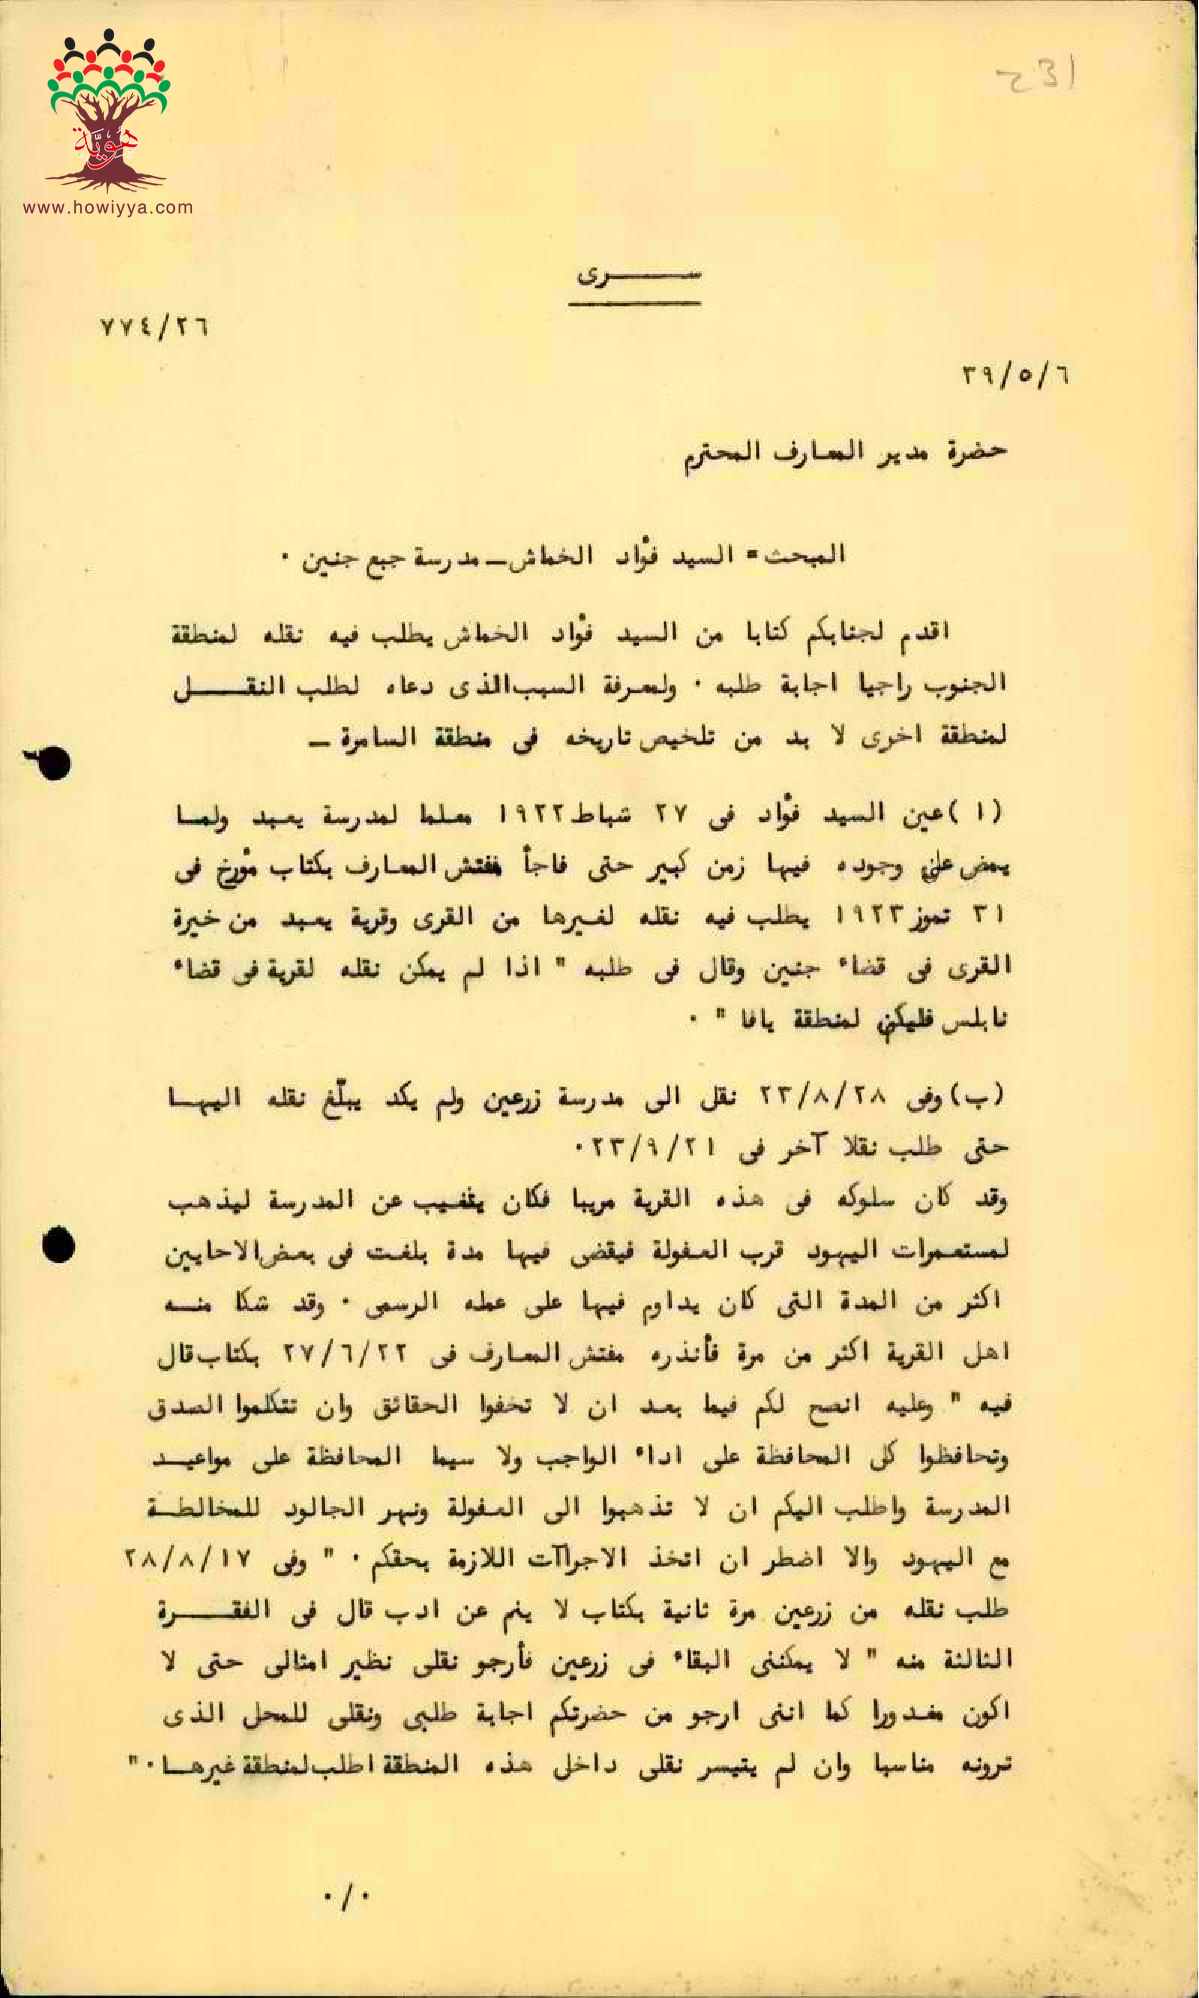 231
هوية
www.howiyya.com
ســـرى
٧٧٤/٢٦
٣٩/٥/٦
حضرة مدير المعارف المحترم
المبحث = السيد فؤاد الخماش ــ مدرسة جبع جنين .
اقدم لجنابكم كتابا من السيد فؤاد الخماش يطلب فيه نقله لمنطقة
الجنوب راجيا اجابة طلبه . ولمعرفة السبب الذى دعاه لطلب النقــل
لمنطقة اخرى لا بد من تلخيص تاريخه فى منطقة السامرة ــ
(١) عين السيد فؤاد فى ٢٧ شباط ١٩٢٢ معلما لمدرسة يعبد ولمـا
يمض على وجوده فيها زمن كبير حتى فاجأ مفتش المعارف بكتاب مؤرخ فى
٣١ تموز ١٩٢٣ يطلب فيه نقله لغيرها من القرى وقرية يعبد من خيرة
القرى فى قضاء جنين وقال فى طلبه " اذا لم يمكن نقله لقرية فى قضاء
نابلس فليكن لمنطقة يافا " .
(ب) وفى ٢٣/٨/٢٨ نقل الى مدرسة زرعين ولم يكد يبلّغ نقله اليهـا
حتى طلب نقلا آخر فى ٢٣/٩/٢١.
وقد كان سلوكه فى هذه القرية مريبا فكان يتغيب عن المدرسة ليذهب
لمستعمرات اليهود قرب العفولة فيقضى فيها مدة بلغت فى بعض الاحايين
اكثر من المدة التى كان يداوم فيها على عمله الرسمى . وقد شكا منـه
اهل القرية اكثر من مرة فأنذره مفتش المعارف فى ٢٧/٦/٢٢ بكتاب قال
فيه " وعليه انصح لكم فيما بعد ان لا تخفوا الحقائق وان تتكلموا الصدق
وتحافظوا كل المحافظة على اداء الواجب ولا سيما المحافظة على مواعيـد
المدرسة واطلب اليكم ان لا تذهبوا الى العفولة ونهر الجالود للمخالطـة
مع اليهود والا اضطر ان اتخذ الاجراآت اللازمة بحقكم . " وفى ٢٨/٨/١٧
طلب نقله من زرعين مرة ثانية بكتاب لا ينم عن ادب قال فى الفقـــرة
الثالثة منه " لا يمكننى البقاء فى زرعين فأرجو نقلى نظير امثالى حتى لا
اكون مغدورا كما اننى ارجو من حضرتكم اجابة طلبى ونقلى للمحل الذى
ترونه مناسبا وان لم يتيسر نقلى داخل هذه المنطقة اطلب لمنطقة غيرهـا . "
٠/٠